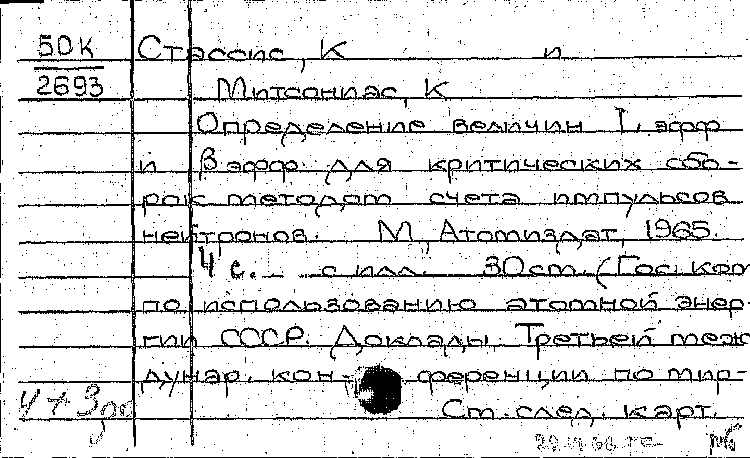 50К Стассис, К и
2693 Митсониас, К
Определение величин l, эфф
и β эфф. для критических сбо-
рок методом счета импульсов
нейтронов. М, Атомиздат, 1965.
4 с. с илл. 30 cm. (Гос. ком
по использованию атомной энер-
гии СССР. Доклады. Третьей меж
дунар. кон- ференции по мир-
См. след. карт.